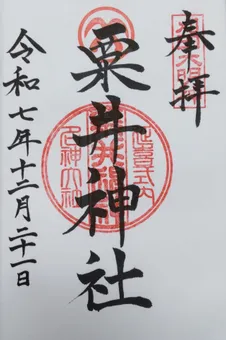 奉拝
粟井神社
令和七年十二月二十一日
延喜式内
名神大社